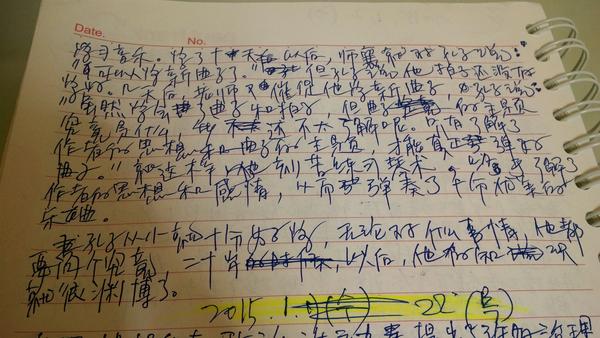 Date. No.
学习音乐。学了十天以后,师襄就对孔子说:
"可以学新曲子了。"但孔子说他拍子还没有
学好。几天后,老师又催促他学新曲子,孔子说:
"虽然学会曲子和拍子,但曲子的主题
究竟是什么,我还不太了解呢。只有了解了
作者的思想和曲子的主题,才能真正弹好
曲子。"就这样,他刻苦练习琴术,了解了
作者的思想和感情,从而弹奏了十分优美的
乐曲。
孔子从小就十分好学,无论对什么事情,他都
要问个究竟。二十岁以后,他的知识
就很渊博了。
2015.1.22(号)